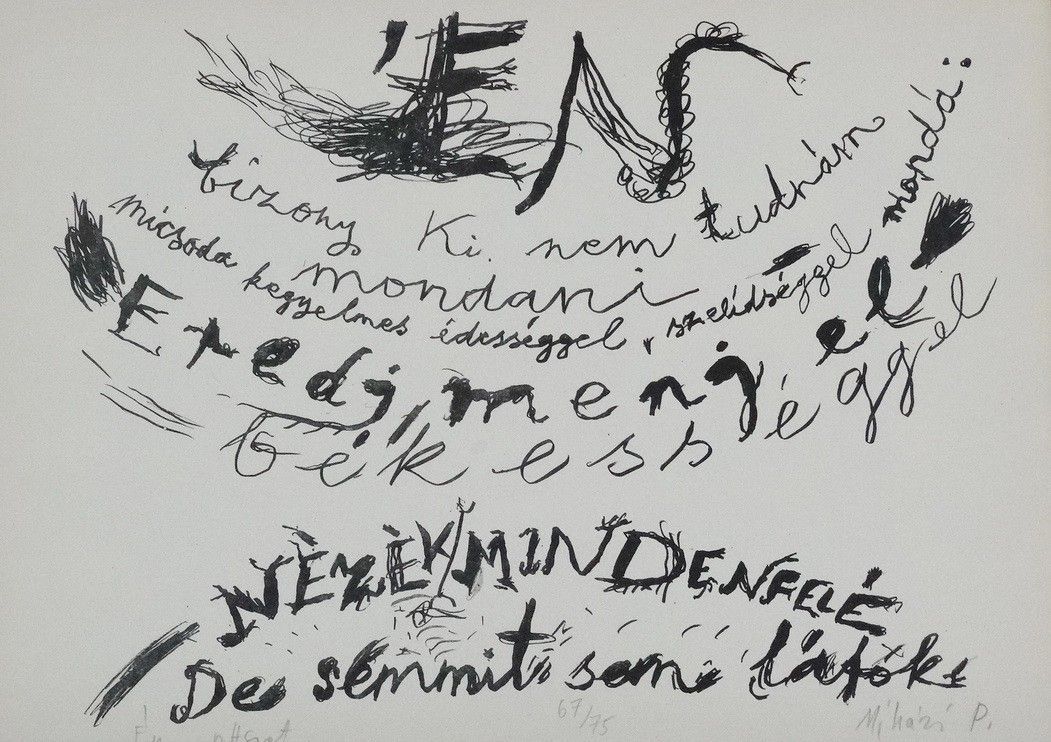 ÉN
bizony Ki nem tudnám
mondani
micsoda kegyelmes édességgel, szelidséggel mondá:
Eredj, menj el
békességgel
NÉZÉK MINDENFELÉ
De semmit sem láték
67/75